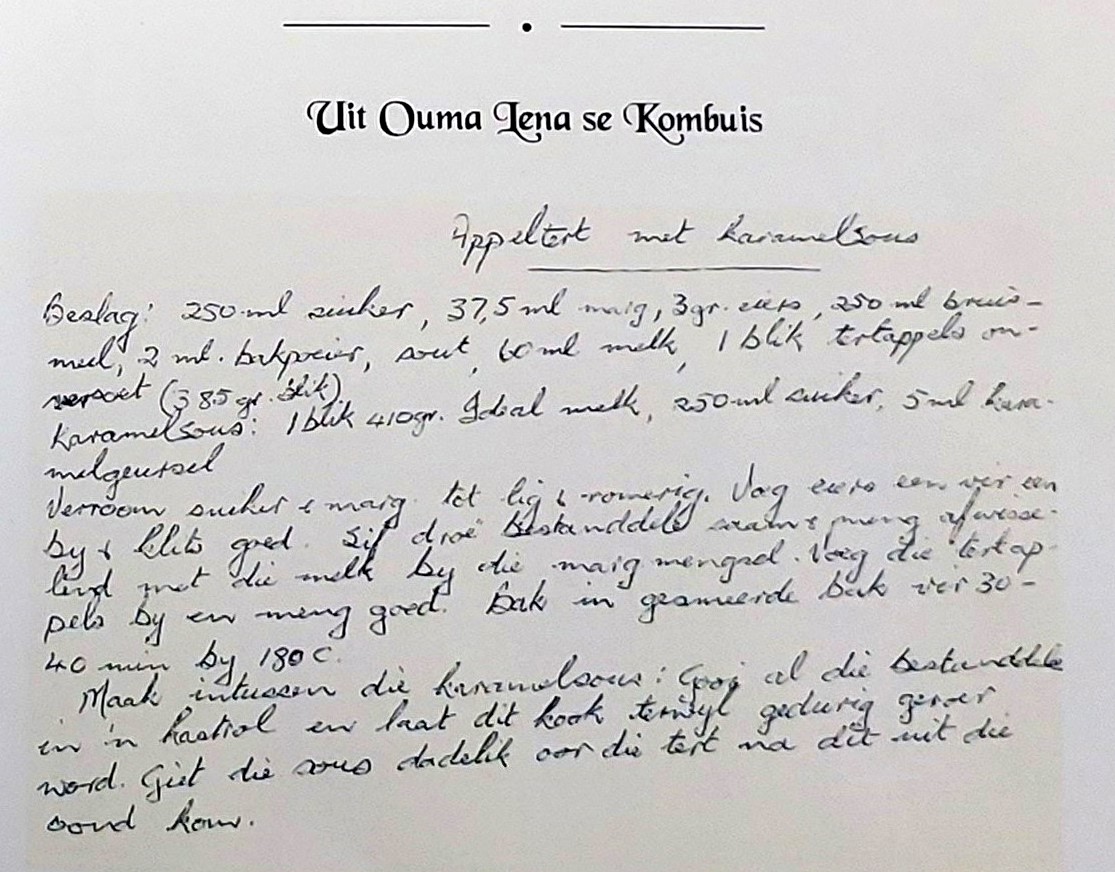 Uit Ouma Lena se Kombuis
Appeltert met karamelsous
Beslag: 250 ml suiker, 37,5 ml marg, 3 gr. eiers, 250 ml bruis-
meel, 2 ml. bakpoeier, sout, 60 ml melk, 1 blik tertappels on-
versoet (385 gr. blik)
Karamelsous: 1 blik 410 gr. Ideal melk, 250 ml suiker, 5 ml kara-
melgeursel
Verroom suiker & marg tot lig & romerig. Voeg eiers een vir een
by & klits goed. Sif droë bestanddele saam & meng afwisse-
lend met die melk by die marg mengsel. Voeg die tertap-
pels by en meng goed. Bak in gesmeerde bak vir 30-
40 min by 180 C.
Maak intussen die karamelsous: Gooi al die bestanddele
in 'n kastrol en laat dit kook terwyl gedurig geroer
word. Giet die sous dadelik oor die tert na dit uit die
oond kom.